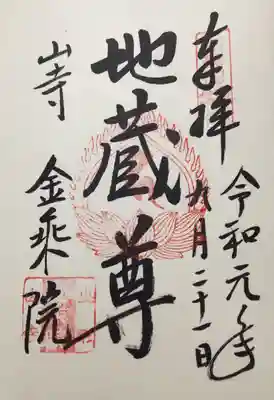 奉拝
令和元年
九月二十一日
地蔵尊
山寺
金乗院